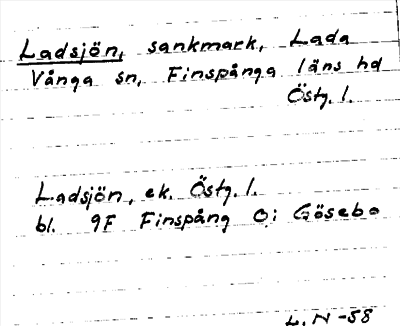 Ladsjön, sankmark, Lada
Vånga sn, Finspånga läns hd
Östg. l.
Ladsjön, ek. Östg. l.
bl. 9F Finspång O; Gösebo
L. N -58